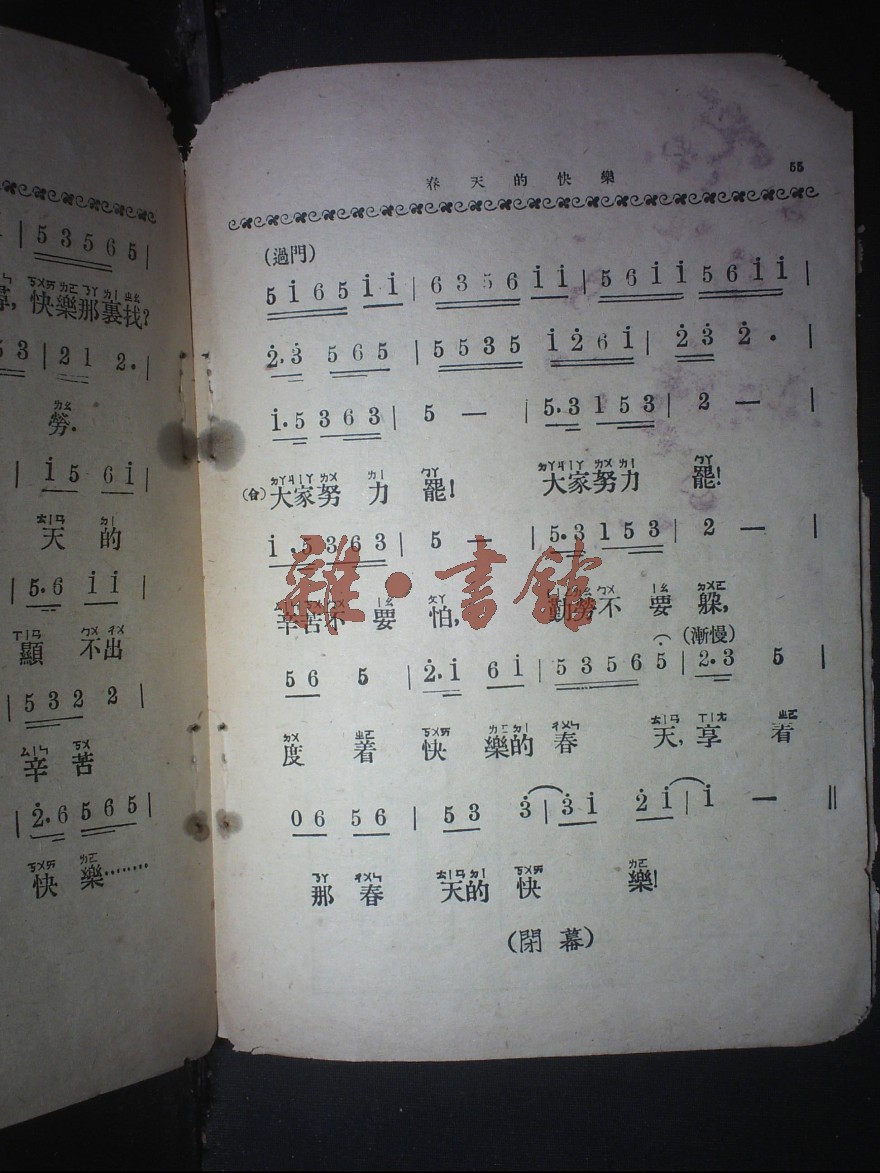 5 3 5 6 5 |
快樂那裏找?
5 3 | 2 1 2. |
勞.
| i 5 6 i |
天的
| 5. 6 i i |
顯不出
| 5 3 2 2 |
辛苦
| 2. 6 5 6 5 |
快樂········
春天的快樂 55
(過門)
5 i 6 5 i i | 6 3 5 6 i i | 5 6 i i 5 6 i i |
2. 3 5 6 5 | 5 5 3 5 i 2 6 i | 2 3 2 . |
i. 5 3 6 3 | 5 — | 5. 3 1 5 3 | 2 — |
(合)大家努力罷! 大家努力罷!
i . 5 3 6 3 | 5 — | 5. 3 1 5 3 | 2 — |
辛苦不要怕, 勤勞不要躲,
(漸慢)
5 6 5 | 2. i 6 i | 5 3 5 6 5 | 2. 3 5 |
度着快樂的春天,享着
0 6 5 6 | 5 3 3 | 3 i 2 i | i — ‖
那春天的快樂!
(閉幕)
雜·書館